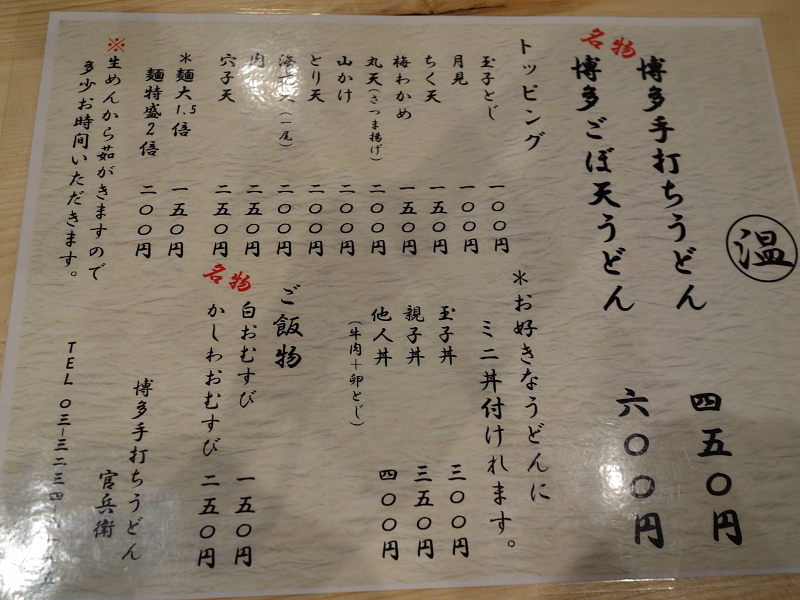 温
博多手打ちうどん 四五〇円
名物
博多ごぼ天うどん 六〇〇円
トッピング
玉子とじ 一〇〇円
月見 一〇〇円
ちく天 一五〇円
梅わかめ 一五〇円
丸天(さつま揚げ) 二〇〇円
山かけ 二〇〇円
とり天 二〇〇円
海老天(一尾) 二〇〇円
肉 二五〇円
穴子天 二五〇円
*麺大1.5倍 一五〇円
麺特盛2倍 二〇〇円
※生めんから茹がきますので
多少お時間いただきます。
*お好きなうどんに
ミニ丼付けれます。
玉子丼 三〇〇円
親子丼 三五〇円
他人丼 四〇〇円
(牛肉+卵とじ)
ご飯物
白おむすび 一五〇円
名物
かしわおむすび 二五〇円
博多手打ちうどん
官兵衛
TEL 〇三-三二三四-